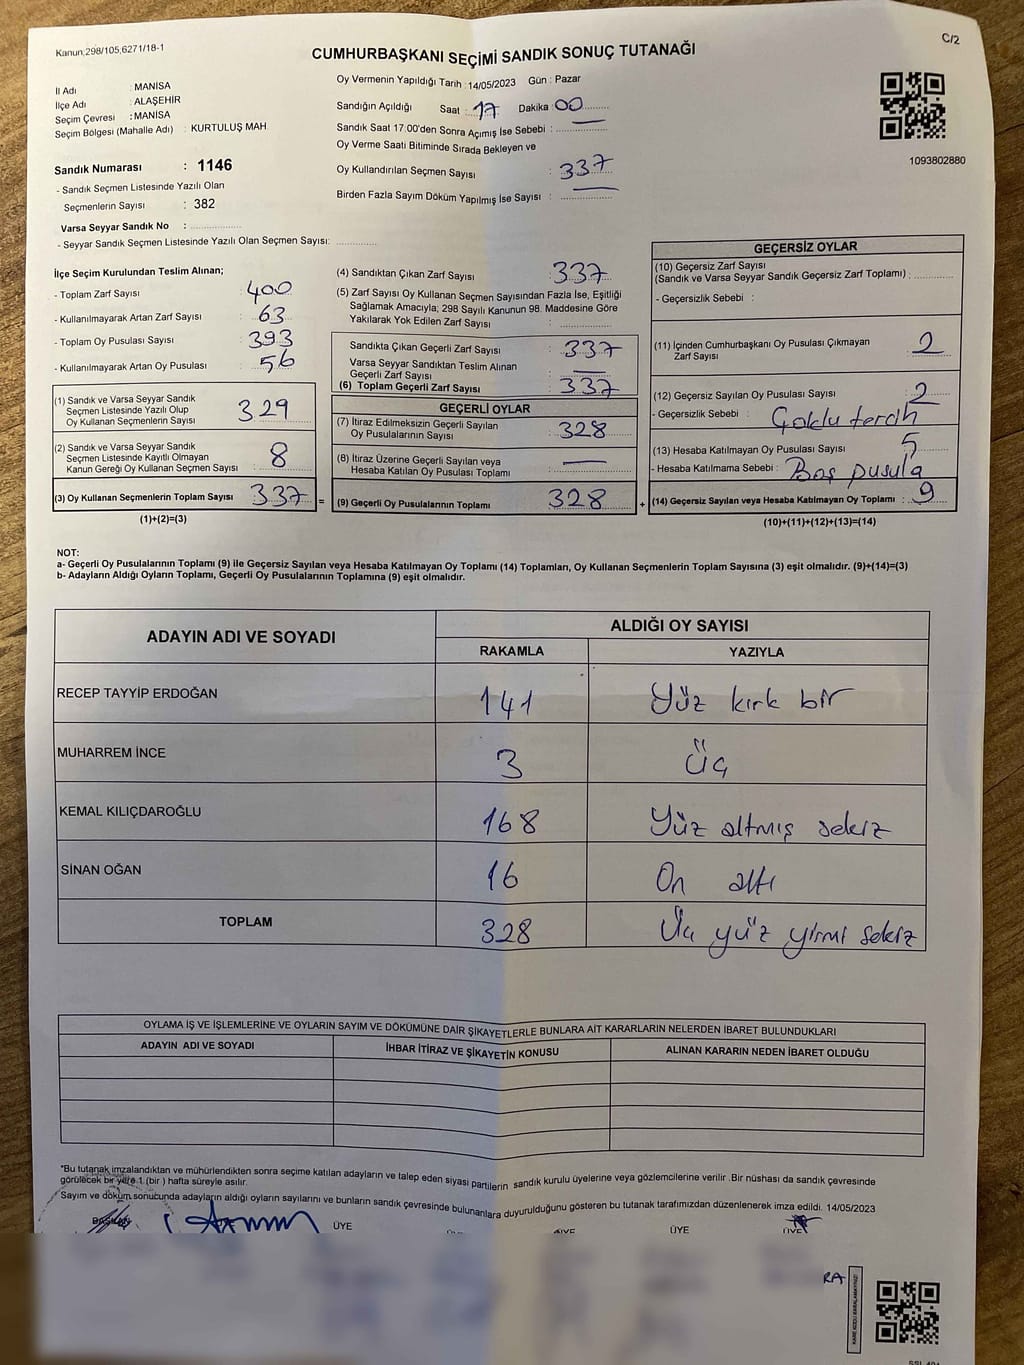 Kanun;298/105,6271/18-1
C/2
CUMHURBAŞKANI SEÇİMİ SANDIK SONUÇ TUTANAĞI
İl Adı : MANİSA
İlçe Adı : ALAŞEHİR
Seçim Çevresi : MANİSA
Seçim Bölgesi (Mahalle Adı) : KURTULUŞ MAH
Sandık Numarası : 1146
- Sandık Seçmen Listesinde Yazılı Olan
Seçmenlerin Sayısı : 382
Varsa Seyyar Sandık No :
- Seyyar Sandık Seçmen Listesinde Yazılı Olan Seçmen Sayısı:
Oy Vermenin Yapıldığı Tarih : 14/05/2023 Gün : Pazar
Sandığın Açıldığı Saat : 17 Dakika : 00
Sandık Saat 17:00'den Sonra Açımış İse Sebebi :
Oy Verme Saati Bitiminde Sırada Bekleyen ve
Oy Kullandırılan Seçmen Sayısı : 337
Birden Fazla Sayım Döküm Yapılmış İse Sayısı :
1093802880
İlçe Seçim Kurulundan Teslim Alınan;
- Toplam Zarf Sayısı : 400
- Kullanılmayarak Artan Zarf Sayısı : 63
- Toplam Oy Pusulası Sayısı : 393
- Kullanılmayarak Artan Oy Pusulası : 56
(1) Sandık ve Varsa Seyyar Sandık
Seçmen Listesinde Yazılı Olup
Oy Kullanan Seçmenlerin Sayısı : 329
(2) Sandık ve Varsa Seyyar Sandık
Seçmen Listesinde Kayıtlı Olmayan
Kanun Gereği Oy Kullanan Seçmen Sayısı : 8
(3) Oy Kullanan Seçmenlerin Toplam Sayısı : 337 =
(1)+(2)=(3)
(4) Sandıktan Çıkan Zarf Sayısı : 337
(5) Zarf Sayısı Oy Kullanan Seçmen Sayısından Fazla İse, Eşitliği
Sağlamak Amacıyla; 298 Sayılı Kanunun 98. Maddesine Göre
Yakılarak Yok Edilen Zarf Sayısı :
Sandıkta Çıkan Geçerli Zarf Sayısı : 337
Varsa Seyyar Sandıktan Teslim Alınan
Geçerli Zarf Sayısı :
(6) Toplam Geçerli Zarf Sayısı : 337
GEÇERLİ OYLAR
(7) İtiraz Edilmeksizin Geçerli Sayılan
Oy Pusulalarının Sayısı : 328
(8) İtiraz Üzerine Geçerli Sayılan veya
Hesaba Katılan Oy Pusulası Toplamı :
(9) Geçerli Oy Pusulalarının Toplamı : 328 +
GEÇERSİZ OYLAR
(10) Geçersiz Zarf Sayısı
(Sandık ve Varsa Seyyar Sandık Geçersiz Zarf Toplamı) :
- Geçersizlik Sebebi :
(11) İçinden Cumhurbaşkanı Oy Pusulası Çıkmayan
Zarf Sayısı : 2
(12) Geçersiz Sayılan Oy Pusulası Sayısı : 2
- Geçersizlik Sebebi : Çoklu tercih
(13) Hesaba Katılmayan Oy Pusulası Sayısı : 5
- Hesaba Katılmama Sebebi : Boş pusula
(14) Geçersiz Sayılan veya Hesaba Katılmayan Oy Toplamı : 9
(10)+(11)+(12)+(13)=(14)
NOT:
a- Geçerli Oy Pusulalarının Toplamı (9) ile Geçersiz Sayılan veya Hesaba Katılmayan Oy Toplamı (14) Toplamları, Oy Kullanan Seçmenlerin Toplam Sayısına (3) eşit olmalıdır. (9)+(14)=(3)
b- Adayların Aldığı Oyların Toplamı, Geçerli Oy Pusulalarının Toplamına (9) eşit olmalıdır.
ADAYIN ADI VE SOYADI ALDIĞI OY SAYISI
RAKAMLA YAZIYLA
RECEP TAYYİP ERDOĞAN 141 Yüz kırk bir
MUHARREM İNCE 3 Üç
KEMAL KILIÇDAROĞLU 168 Yüz altmış sekiz
SİNAN OĞAN 16 On altı
TOPLAM 328 Üç yüz yirmi sekiz
OYLAMA İŞ VE İŞLEMLERİNE VE OYLARIN SAYIM VE DÖKÜMÜNE DAİR ŞİKAYETLERLE BUNLARA AİT KARARLARIN NELERDEN İBARET BULUNDUKLARI
ADAYIN ADI VE SOYADI İHBAR İTİRAZ VE ŞİKAYETİN KONUSU ALINAN KARARIN NEDEN İBARET OLDUĞU
*Bu tutanak imzalandıktan ve mühürlendikten sonra seçime katılan adayların ve talep eden siyasi partilerin sandık kurulu üyelerine veya gözlemcilerine verilir. Bir nüshası da sandık çevresinde
görülecek bir yere 1 (bir ) hafta süreyle asılır.
Sayım ve döküm sonucunda adayların aldığı oyların sayılarını ve bunların sandık çevresinde bulunanlara duyurulduğunu gösteren bu tutanak tarafımızdan düzenlenerek imza edildi. 14/05/2023
BAŞKAN ÜYE ÜYE ÜYE ÜYE
RA